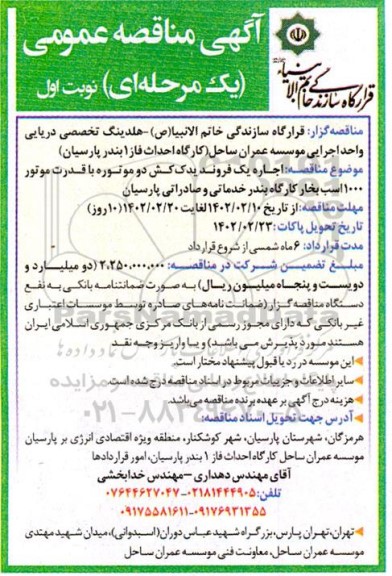 آگهی مناقصه عمومی
(یک مرحله‌ای) نوبت اول
قرارگاه سازندگی خاتم الانبیاء
مناقصه‌گزار: قرارگاه سازندگی خاتم الانبیا(ص) -هلدینگ تخصصی دریایی
واحد اجرایی موسسه عمران ساحل(کارگاه احداث فاز۱ بندر پارسیان)
موضوع مناقصه: اجاره یک فروند یدک کش دو موتوره با قدرت موتور
۱۰۰۰ اسب بخار کارگاه بندر خدماتی و صادراتی پارسیان
مهلت مناقصه: از تاریخ ۱۴۰۲/۰۲/۱۰ لغایت ۱۴۰۲/۰۲/۲۰(۱۰ روز)
تاریخ تحویل پاکات: ۱۴۰۲/۰۲/۲۳
مدت قرارداد: ۶ ماه شمسی از شروع قرارداد
مبلغ تضمین شرکت در مناقصه: ۲،۲۵۰،۰۰۰،۰۰۰ (دو میلیارد و
دویست و پنجاه میلیون ریال) به صورت ضمانتنامه بانکی به نفع
دستگاه مناقصه گزار (ضمانت نامه‌های صادره توسط موسسات اعتباری
غیر بانکی که دارای مجوز رسمی از بانک مرکزی جمهوری اسلامی ایران
هستند مورد پذیرش می باشد) و یا واریز وجه نقد
این موسسه در رد یا قبول پیشنهاد مختار است.
سایر اطلاعات و جزییات مربوط در اسناد مناقصه درج شده است.
هزینه درج آگهی بر عهده برنده مناقصه می‌باشد.
آدرس جهت تحویل اسناد مناقصه:
هرمزگان، شهرستان پارسیان، شهر کوشکنار، منطقه ویژه اقتصادی انرژی بر پارسیان
موسسه عمران ساحل کارگاه احداث فاز ۱ بندر پارسیان، امور قراردادها
آقای مهندس دهداری - مهندس خدابخشی
تلفن: ۰۲۱۸۱۴۴۴۹۰۵-۰۷۶۴۴۶۲۷۰۴۷
۰۹۱۷۶۹۳۱۳۵۵-۰۹۱۷۵۵۸۱۶۱۱
تهران، تهران پارس، بزرگراه شهید عباس دوران(اسبدوانی)، میدان شهید مهتدی
موسسه عمران ساحل، معاونت فنی موسسه عمران ساحل